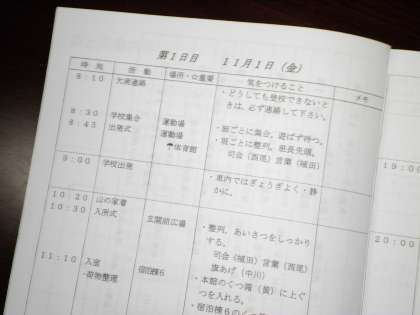 第1日目　11月1日（金）
時刻　活動　場所・☆重要　気をつけること　メモ
8:10　欠席連絡　・どうしても登校できないと
きは、必ず連絡して下さい。
8:30　学校集合　運動場　・班ごとに集合。遊ばず待つ。
8:45　出発式　運動場　・班ごとに整列。班長先頭。
☂体育館　司会（西尾）言葉（植田）
9:00　学校出発　・車内ではぎょうぎよく・静
かに。
10:20　山の家着
10:30　入所式　玄関前広場　・整列、あいさつをしっかり
する。
司会（植田）言葉（西尾）
旗あげ（中川）
11:10　入室　・本館のくつ箱（黄）に上ぐ
・荷物整理　宿泊棟6　つを入れる。
・宿泊棟6のくつ
19:00
20:00